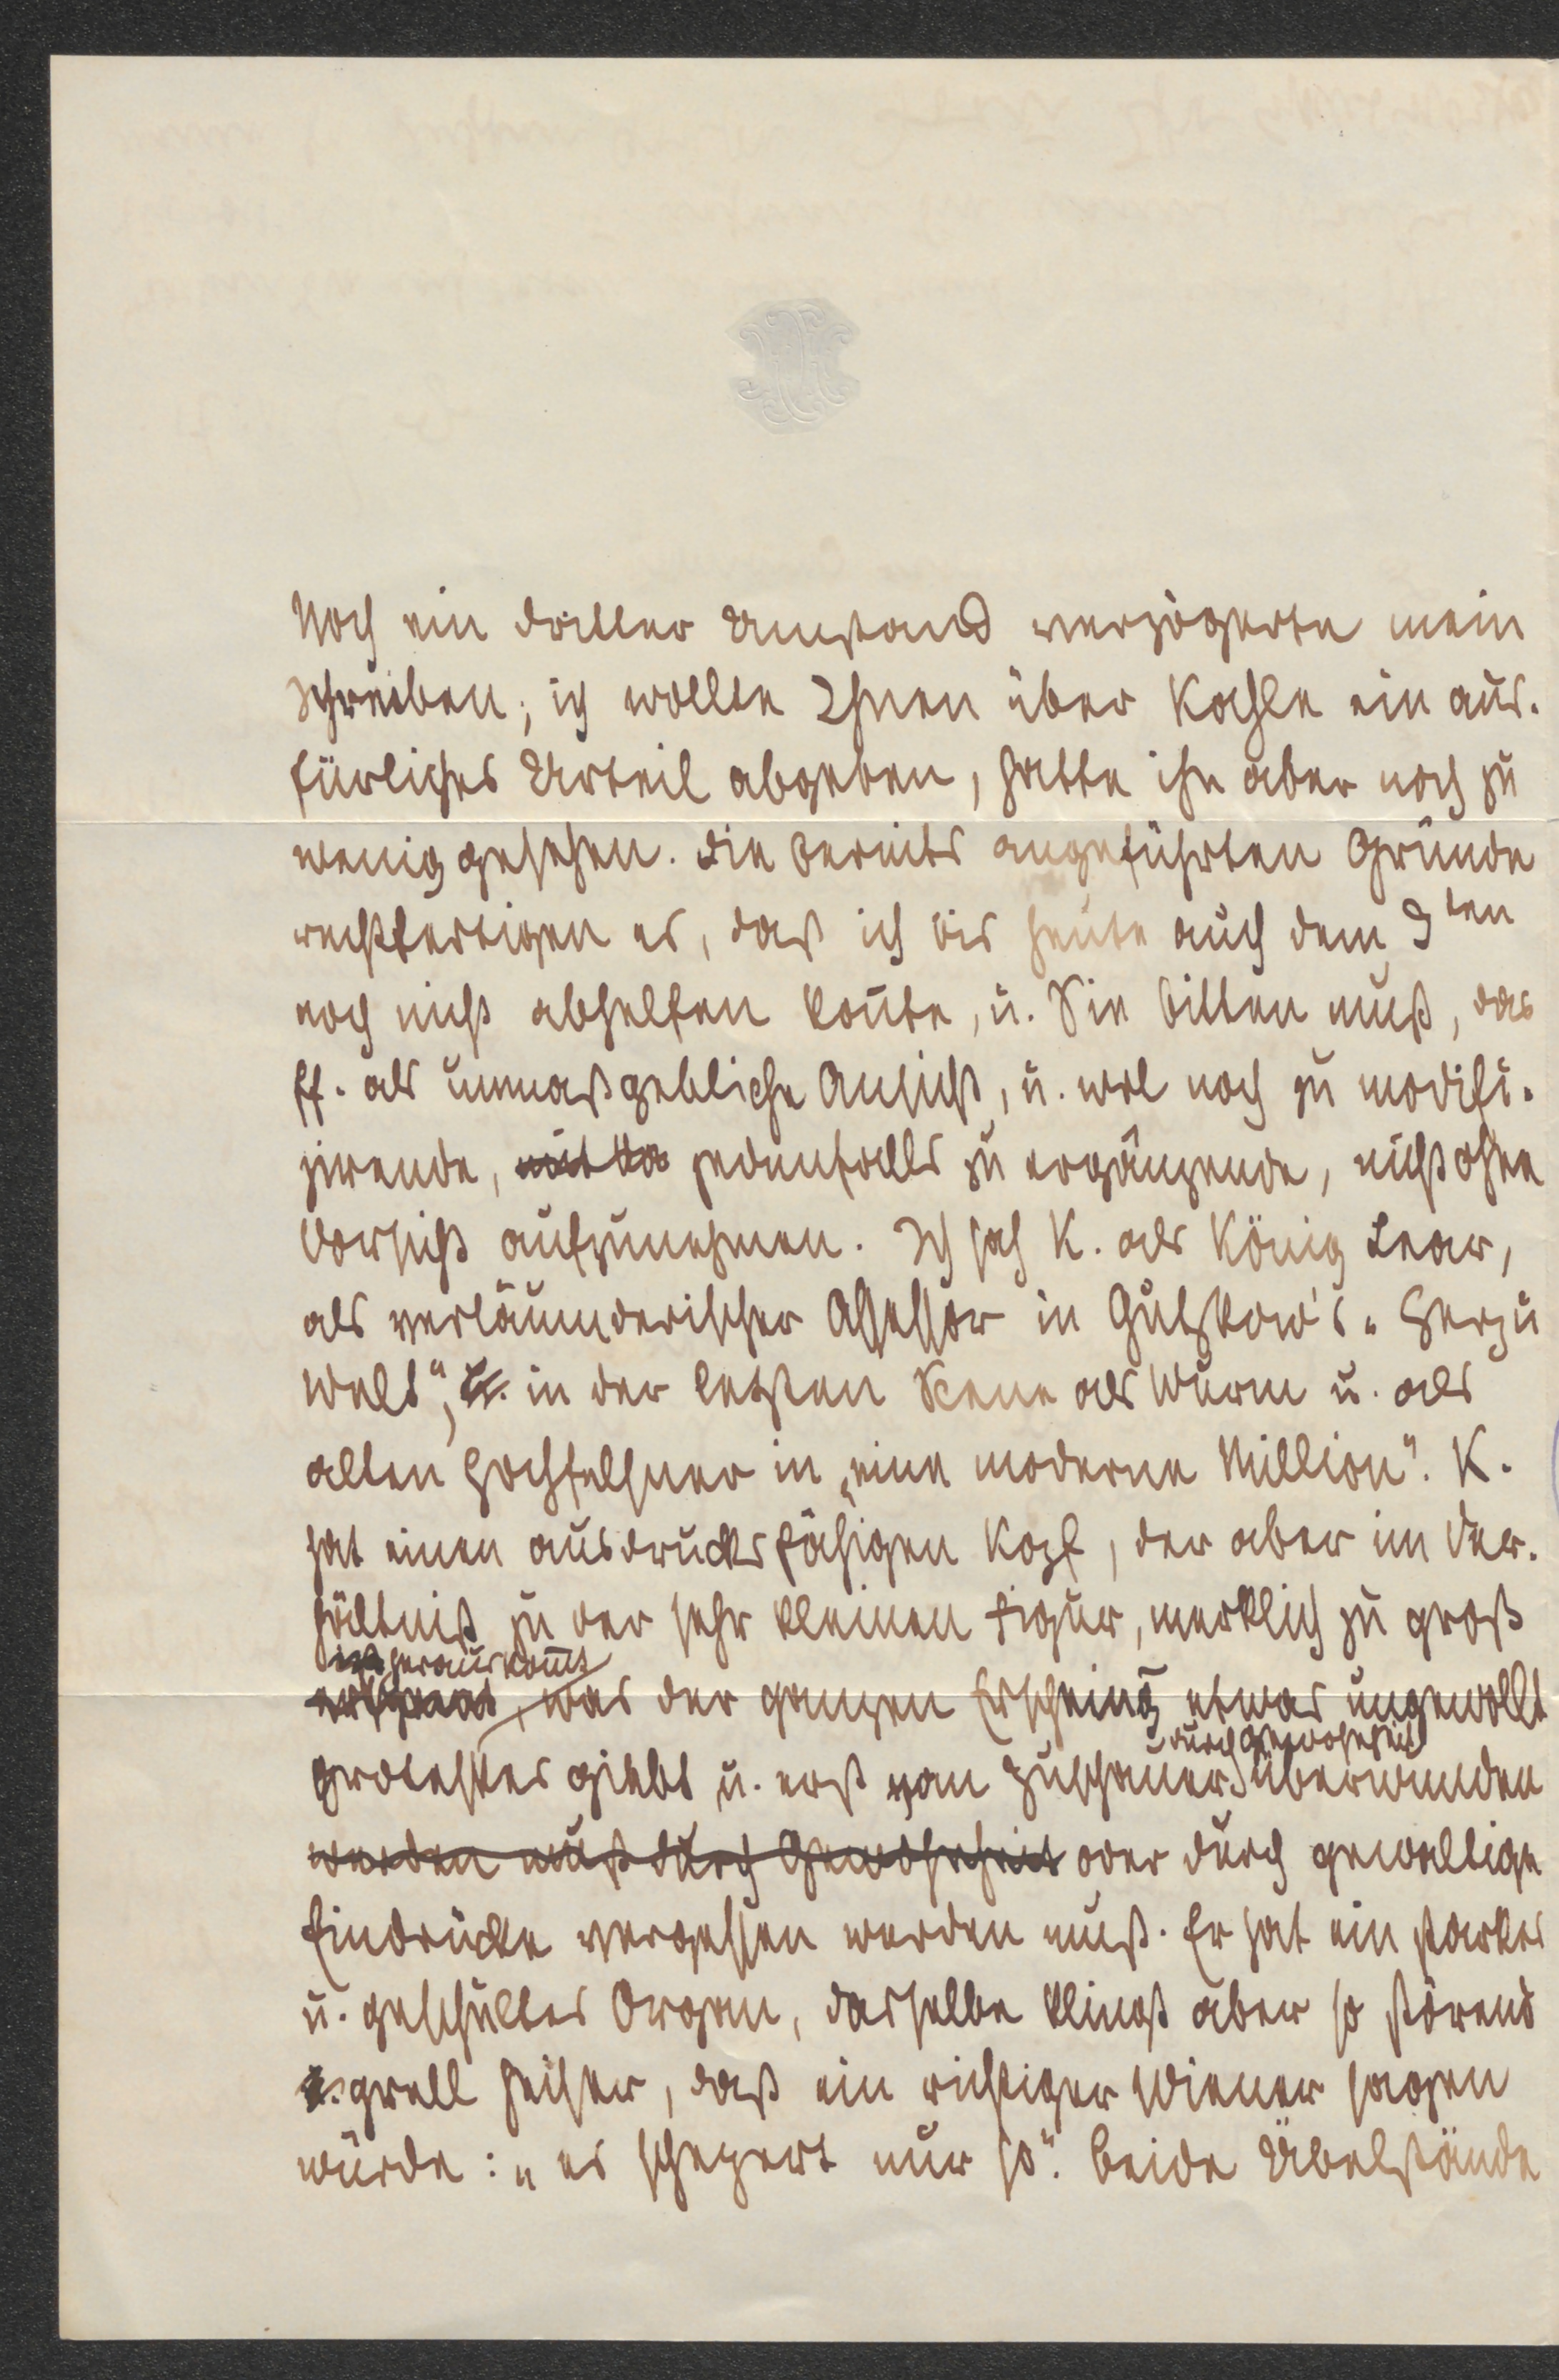 Noch ein dritter Umstand verzögerte mein
Schreiben; ich wollte Ihnen über Kahle ein aus-
fürliches Urteil abgeben, hatte ihn aber noch zu
wenig gesehen. Die bereits angeführten Gründe
rechtfertigen es, daß ich bis heute auch dem 3ten
noch nicht abhelfen kon̄te, u. Sie bitten muß, das
ff. als unmaßgebliche Ansicht, u. wol noch zu modifi-
zirende, jedenfalls zu ergänzende, nicht ohne
Vorsicht aufzunehmen. Ich sah K. als König Lear,
als verläumderischer Assessor in Gutzkow's „Herz u
Welt", in der letzten Scene als Wurm u. als
alten Hochfelsner in „eine moderne Million". K.
hat einen ausdrucksfähigen Kopf, der aber im Ver-
hältniß zu der sehr kleinen Figur, merklich zu groß
herauskom̄t
, was der ganzen Erscheinḡ etwas ungewollt
durch Gewohnheit
groteskes giebt u. erst vom Zuschauer überwunden
werden muß durch Gewohnheit oder durch gewaltige
Eindrücke vergessen werden muß. Er hat ein starkes
u. geschultes Organ, dasselbe klingt aber so störend
grell heiser, daß ein richtiger Wiener sagen
würde: „es schepert nur so". Beide Übelstände